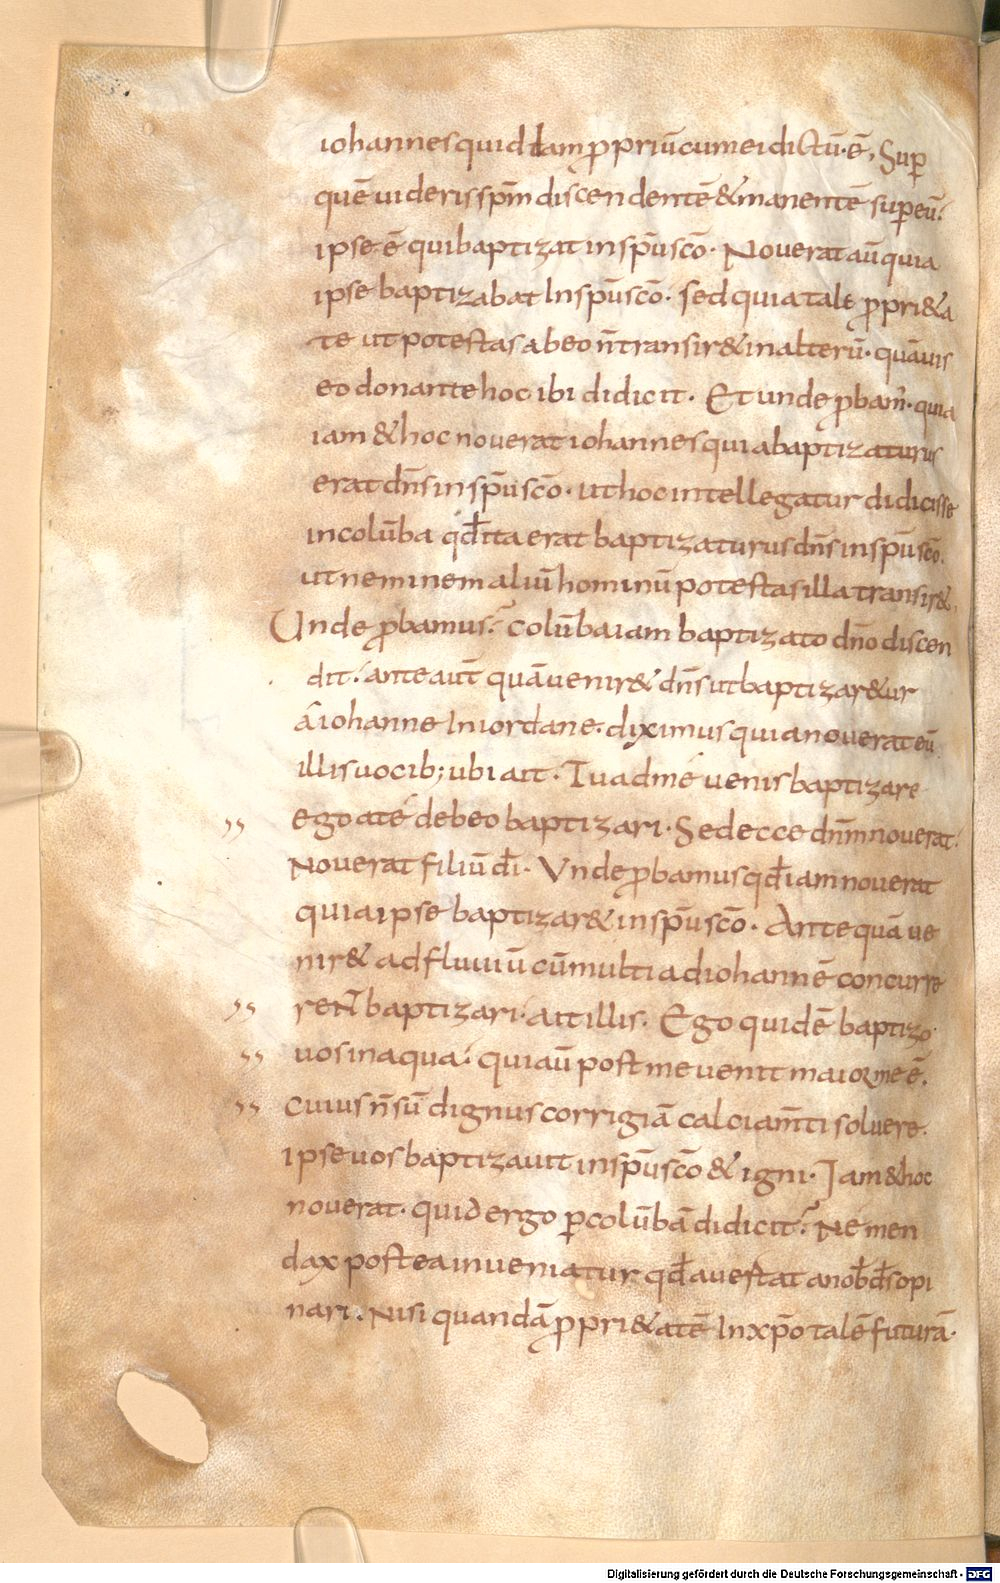 iohannes quiddam ꝓpriū cum ei dictū·ē, Suꝑ
quē uideris spm̄ discendentē & manentē suꝑ eū.
ipse ē qui baptizat in spū sc̄o· Nouerat aū quia
ipse baptizabat In spū sc̄o· sed quia tale ꝓpri&a
te ut potestas ab eo n̄ transir& in alterū· quāuis
eo donante hoc ibi didicit· Et unde ꝓbam᷒· quia
iam & hoc nouerat iohannes quia baptizaturus
erat dn̄s in spū sc̄o· ut hoc intellegatur didicisse
in colūba qđ ita erat baptizaturus dn̄s in spū sc̄o.
ut neminem aliū hominū potestas illa transir&,
Unde ꝓbamus? colūba iam baptizato dn̄o discen
dit· ante aut̄ quā uenir& dn̄s ut baptizar&ur
a iohanne In iordane· diximus quia nouerat eū
illis uocib; ubi ait· Tu ad mé uenis baptizare
ego a té debeo baptizari· Sed ecce dn̄m nouerat·
Nouerat filiū dī· Vnde ꝓbamus qđ iam nouerat
quia ipse baptizar& in spū sc̄o· Ante quā ue
nir& ad fluuiū cū multi ad iohannē concurre
ren̄ baptizari· ait illis· Ego quidē baptizo
uos in aqua· qui aū post me uenit maior me ē.
cuius n̄ sū dignus corrigiā calciam̄ti soluere·
ipse uos baptizauit in spū sc̄o & igni· Iam & hoc
nouerat· quid ergo ꝑ colūbā didicit? Ne men
dax postea inueniatur qđ auertat a nob̄ d̄s opi
nari· Nisi quandā ꝓpri&atē In xp̄o talē futurā·
Digitalisierung gefördert durch die Deutsche Forschungsgemeinschaft - DFG